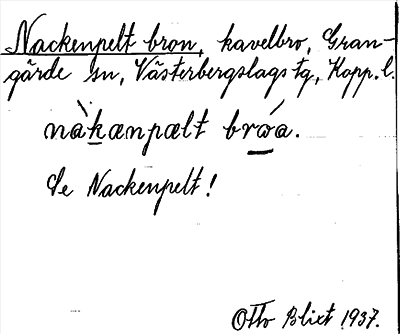 Nackenpelt bron, kavelbro, Gran-
gärde sn, Västerbergslags tg, Kopp. l.
nàkænpælt brωá.
Se Nackenpelt!
Otto Blixt 1937.